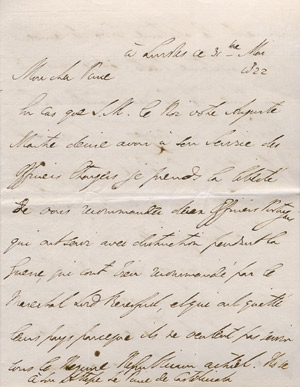 à Londres ce 31 Mai
1822
Mon cher Prince
En cas que S.M. le Roi votre Auguste
Maitre desire avoir à son service des
officiers Etrangers je prends la liberté
de vous recommander deux officiers
qui ont servi avec distinction pendant la
Guerre, qui sont recommandé par le
Marechal Lord Beresford, et qui ont quitté
leurs pays parceque ils ne veulent pas servir
sous le Regime actuel.